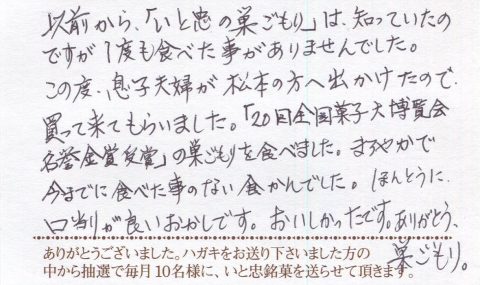 以前から、「いと忠の巣ごもり」は、知っていたの
ですが1度も食べた事がありませんでした。
この度、息子夫婦が松本の方へ出かけたので、
買って来てもらいました。「20回全国菓子大博覧会
名誉金賞受賞」の巣ごもりを食べました。まろやかで
今までに食べた事のない食かんでした。ほんとうに、
口当りが良いおかしです。おいしかったです。ありがとう、
巣ごもり。
ありがとうございました。ハガキをお送り下さいました方の
中から抽選で毎月10名様に、いと忠銘菓を送らせて頂きます。